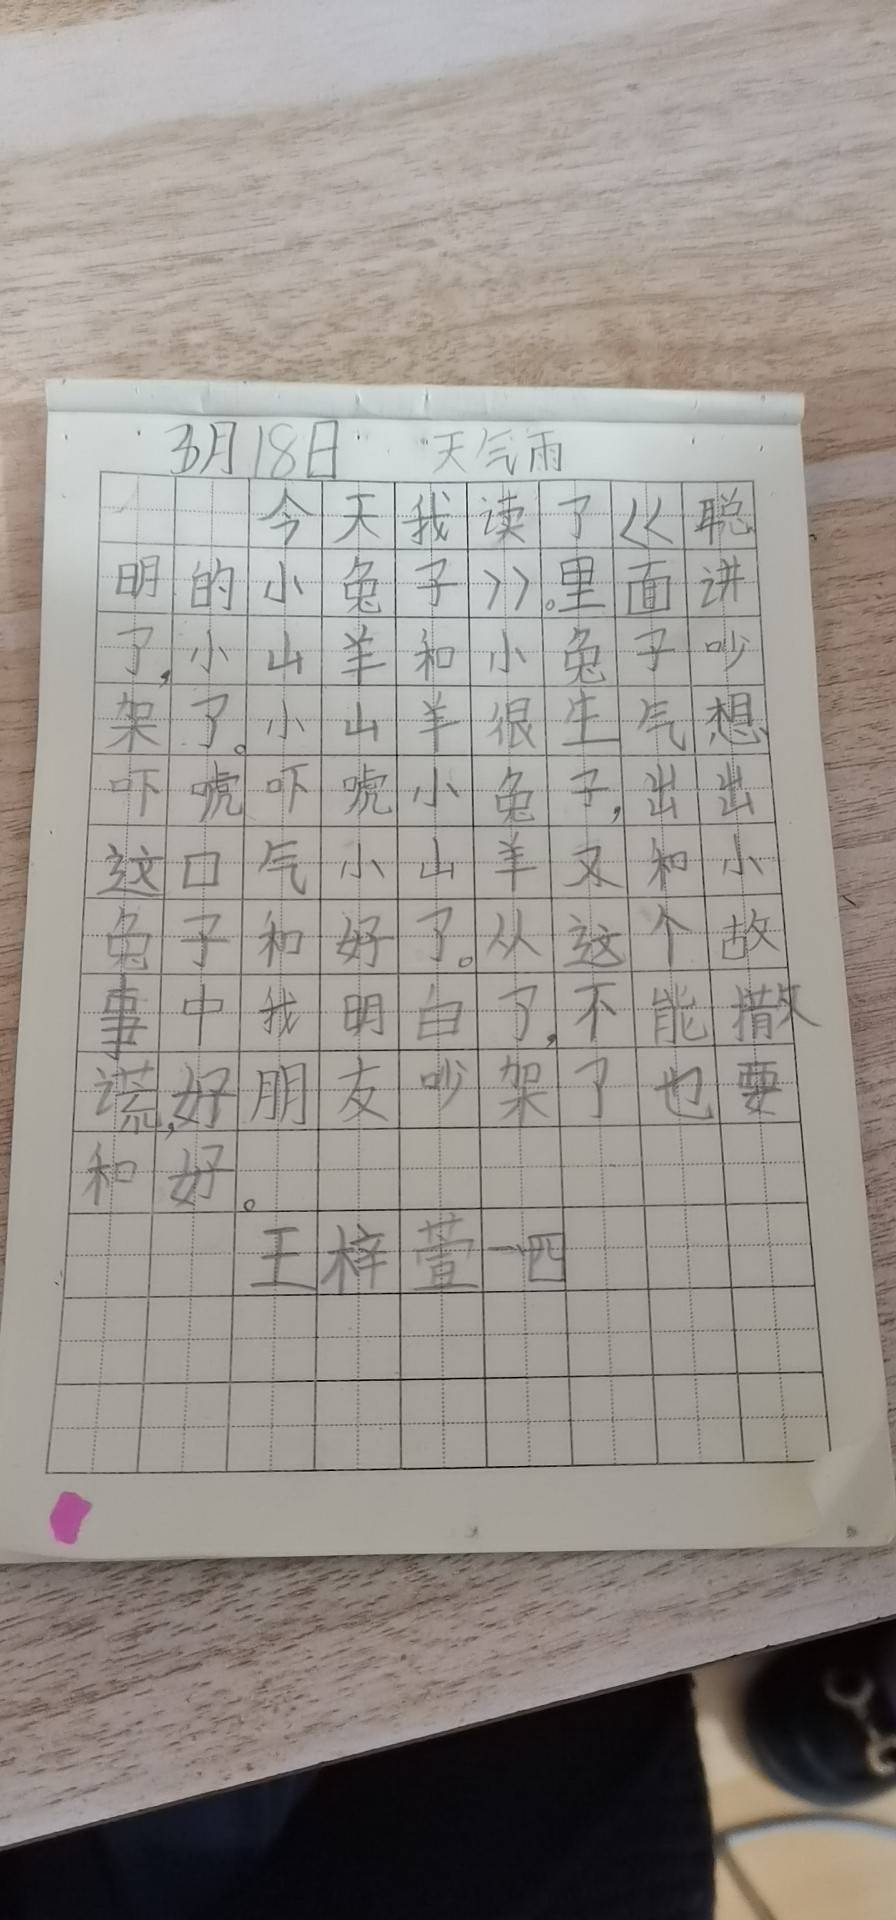 3月18日 天气雨
今天我读了《聪
明的小兔子》。里面讲
了,小山羊和小兔子吵
架了。小山羊很生气想
吓唬吓唬小兔子,出出
这口气小山羊又和小
兔子和好了。从这个故
事中我明白了,不能撒
谎,好朋友吵架了也要
和好。
王梓萱一四